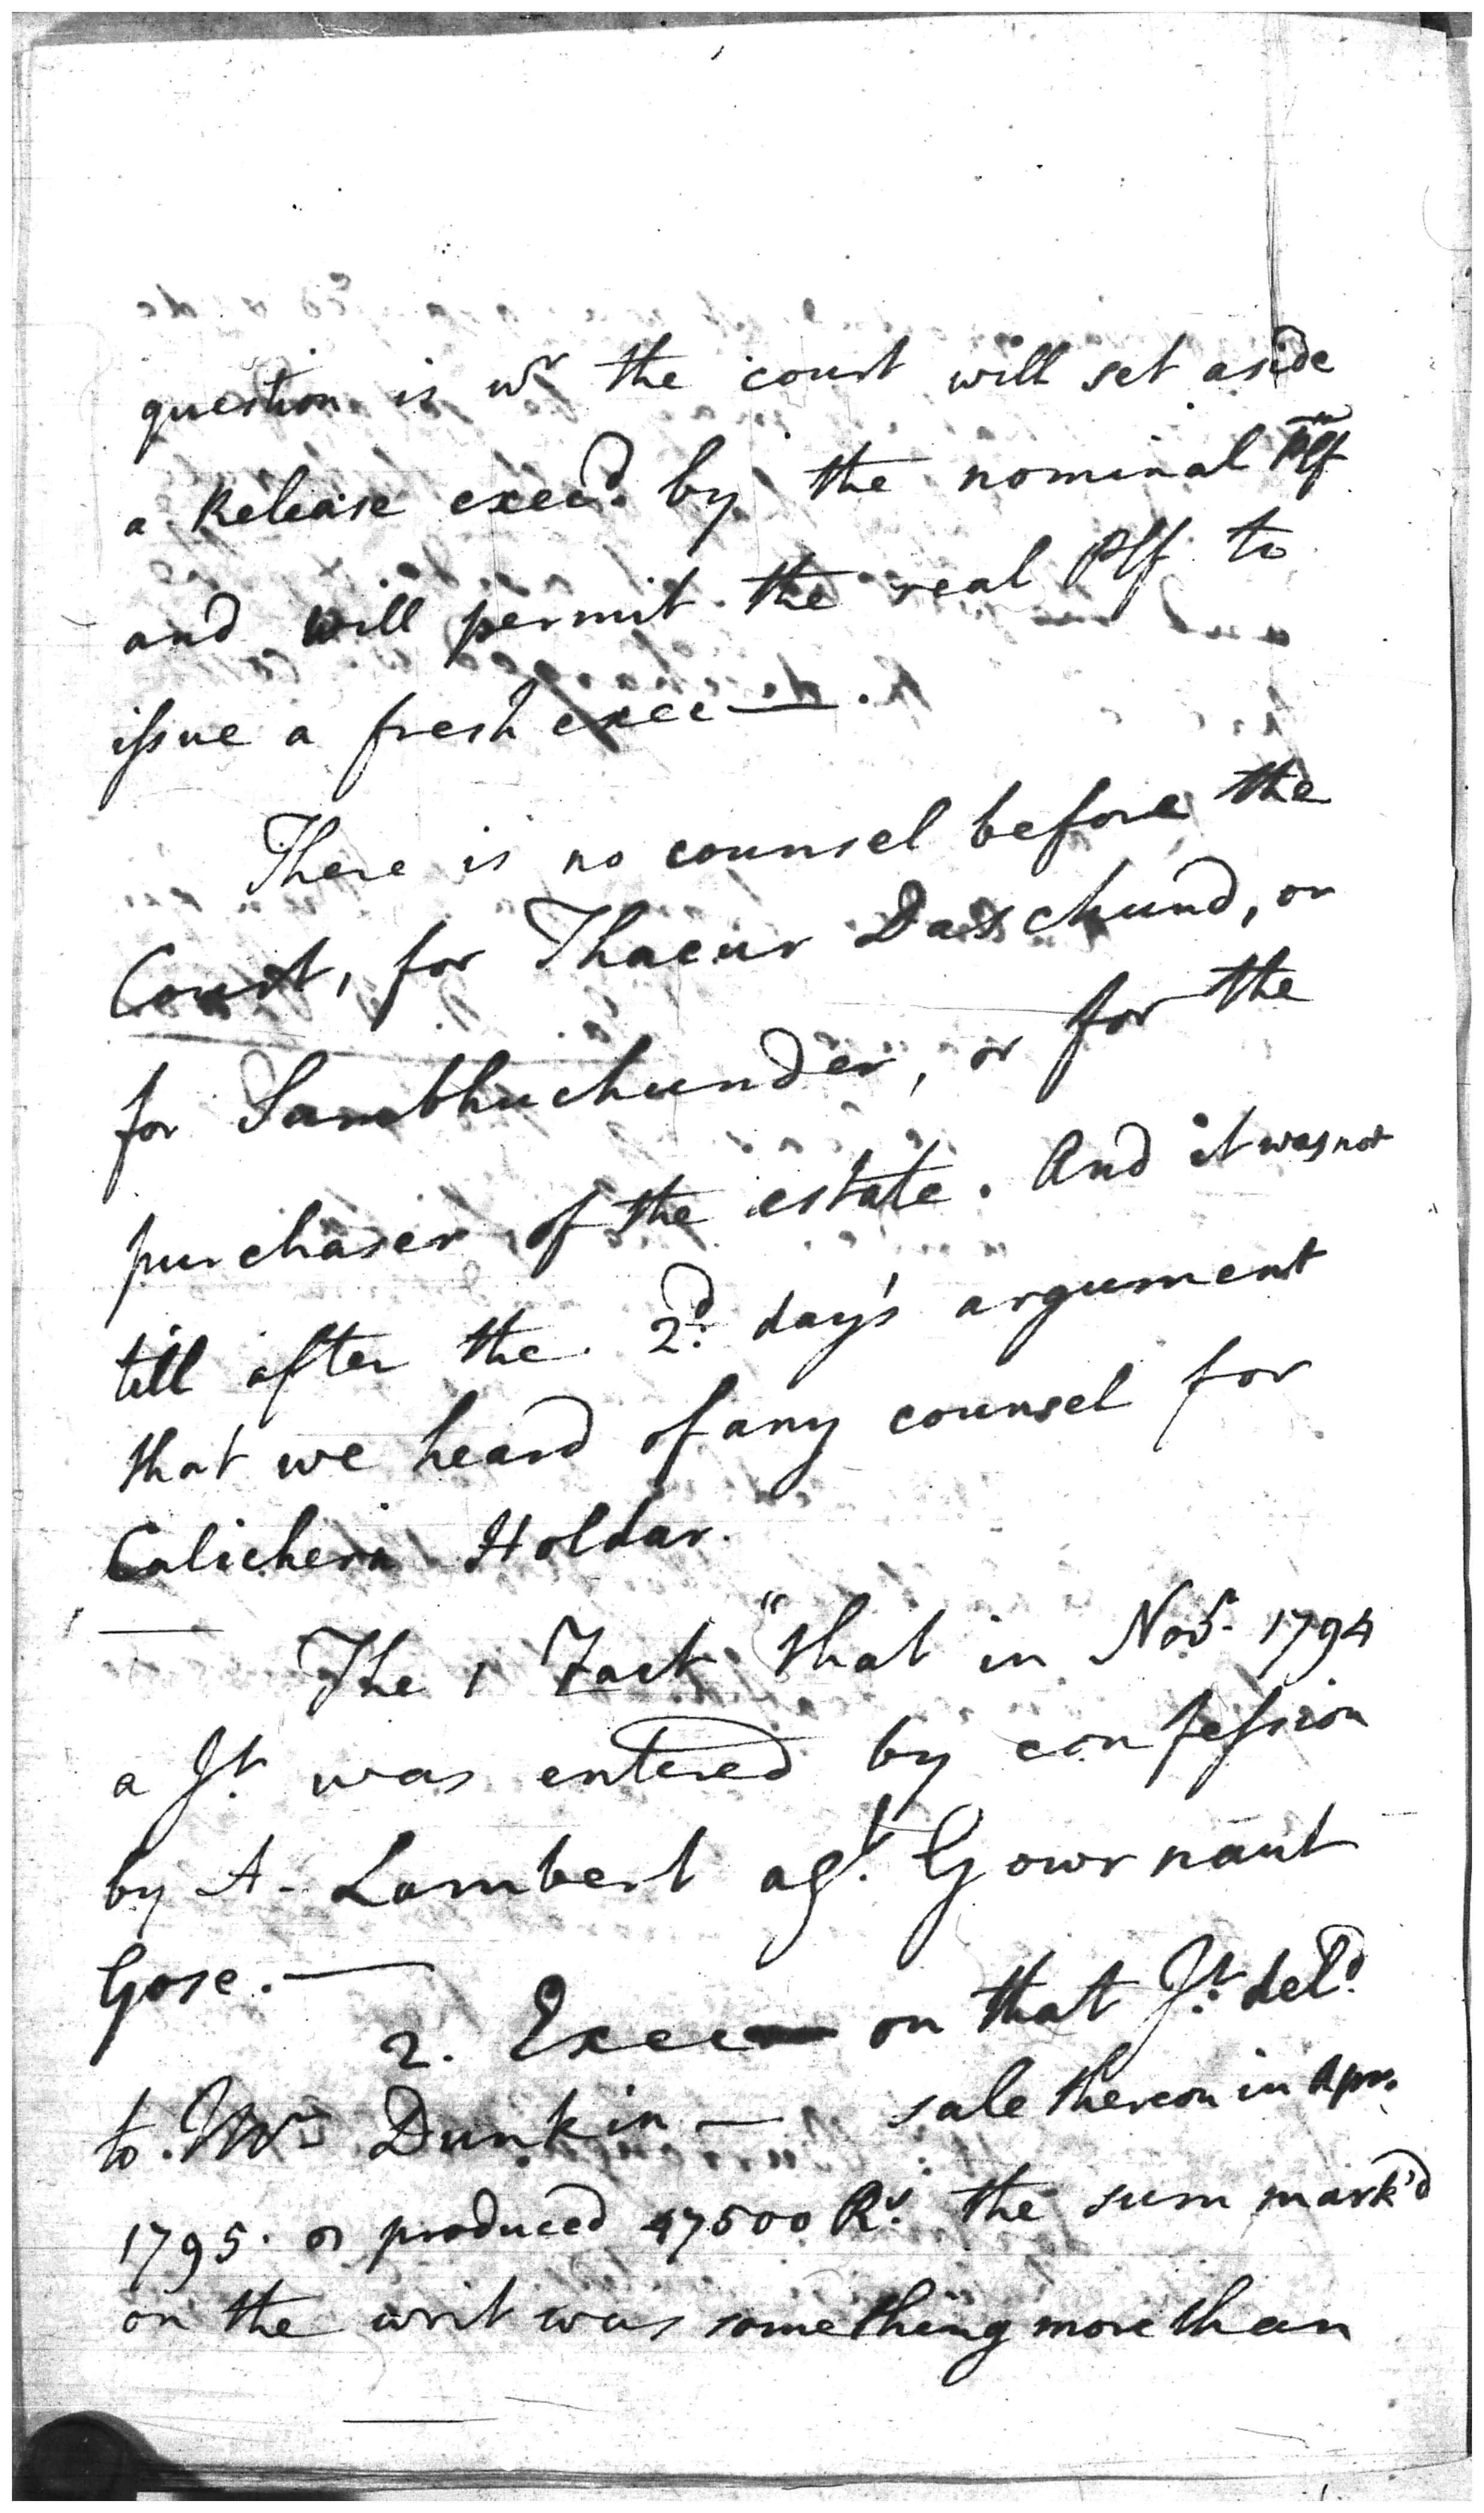 question is wr the court will set aside
a Release execd. by the nominal Plf
and will permit the real Plf to
issue a fresh exec—.
There is no counsel before the
Court, for Thacur Daschund, or
for Sambhuchunder, or for the
purchaser of the estate. And it was not
till after the 2d. day's argument
that we heard of any counsel for
Calichern Holdar.
The 1 Fact "that in Novr. 1794
a Jt. was entered by confession
by A. Lambert agt. Gournaut
Gose.—
2. Exec— on that Jt. deld.
to Dunkin — sale thereon in Apr.
1795. produced 47500 Rs. the sum mark'd
on the writ was something more than